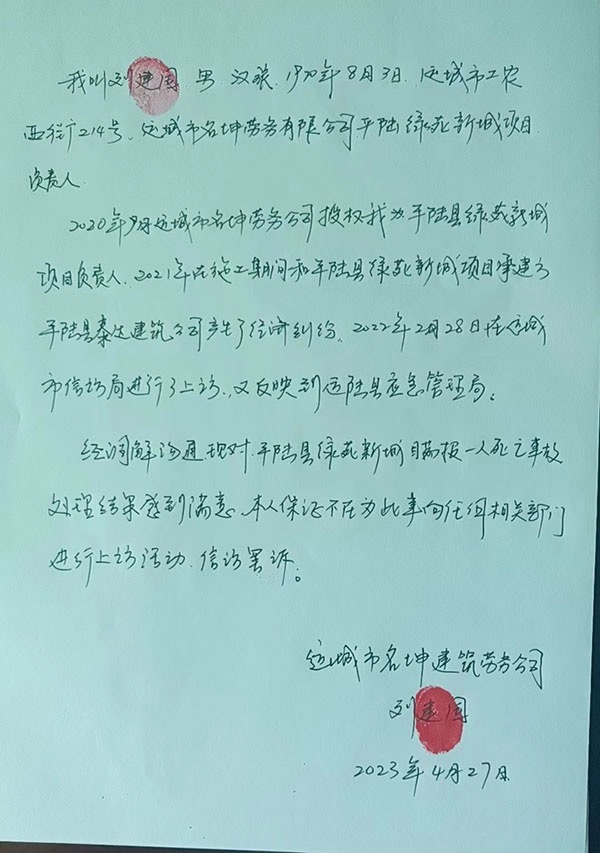 我叫刘建国 男 汉族 1970年8月3日 运城市工农
西街214号、运城市名坤劳务有限公司平陆绿苑新城项目
负责人
2020年9月运城市名坤劳务公司授权我为平陆县绿苑新城
项目负责人、2021年在施工期间和平陆县绿苑新城项目承建方
平陆县泰达建筑公司产生了经济纠纷、2022年2月28日在运城
市信访局进行了上访、又反映到运陆县应急管理局。
经调解沟通现对平陆县绿苑新城目瞒报一人死亡事故
处理结果感到满意、本人保证不在为此事向任何相关部门
进行上访活动、信访罢诉。
运城市名坤建筑劳务公司
刘建国
2023年4月27日